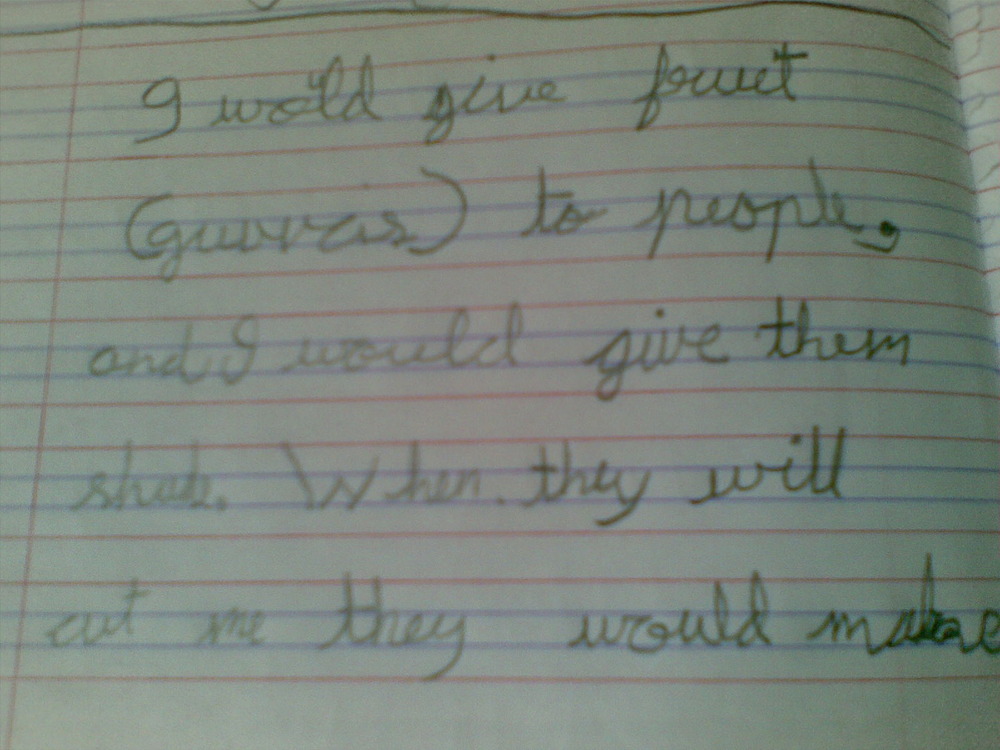 I would give fruit
(guvvas) to people,
and I would give them
shade. When they will
cut me they would make